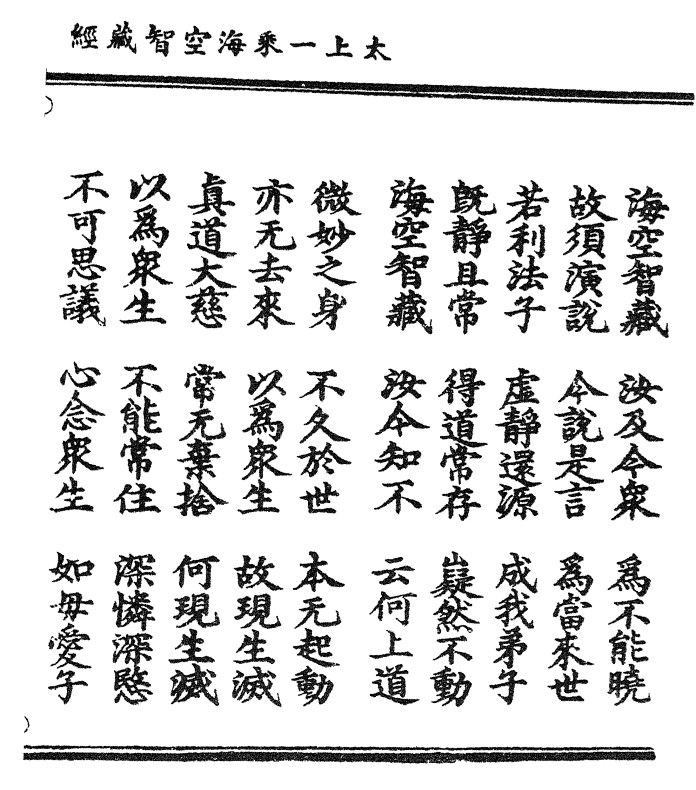 太上一乘海空智藏經
海空智藏 汝及今衆 爲不能曉
故須演說 今說是言 爲當來世
若利法子 虛靜還源 成我弟子
旣靜且常 得道常存 嶷然不動
海空智藏 汝今知不 云何上道
微妙之身 不久於世 本无起動
亦无去來 以爲衆生 故現生滅
真道大慈 常无棄捨 何現生滅
以爲衆生 不能常住 深憐深愍
不可思議 心念衆生 如母愛子